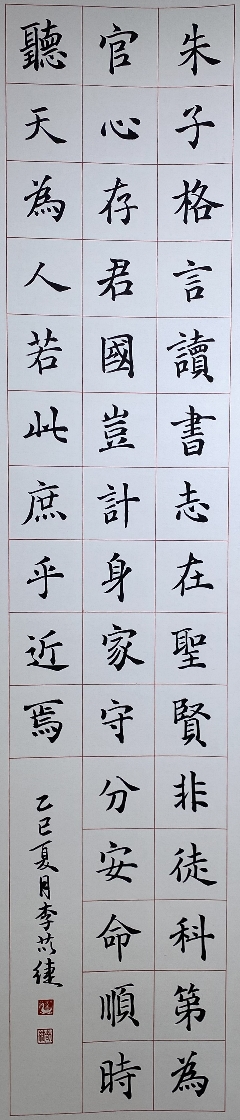 朱子格言讀書志在聖賢非徒科第為
官心存君國豈計身家守分安命順時
聽天為人若此庶乎近焉
乙巳夏月李